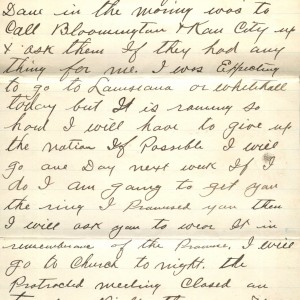 Dave in the moring was to
Call Bloomington & Kan City up
& ask them If they had any
thing for me. I was Expecting
to go to Louisiana or whitehall
today but It is raining so
how I will have to give up
the notion If Possible I will
go one Day next week If I
do I am going to get you
the ring I Promised you then
I will ask you to wear It in
remembrance of the Promise, I will
go to Church to night. the
Protracted meeting Closed on